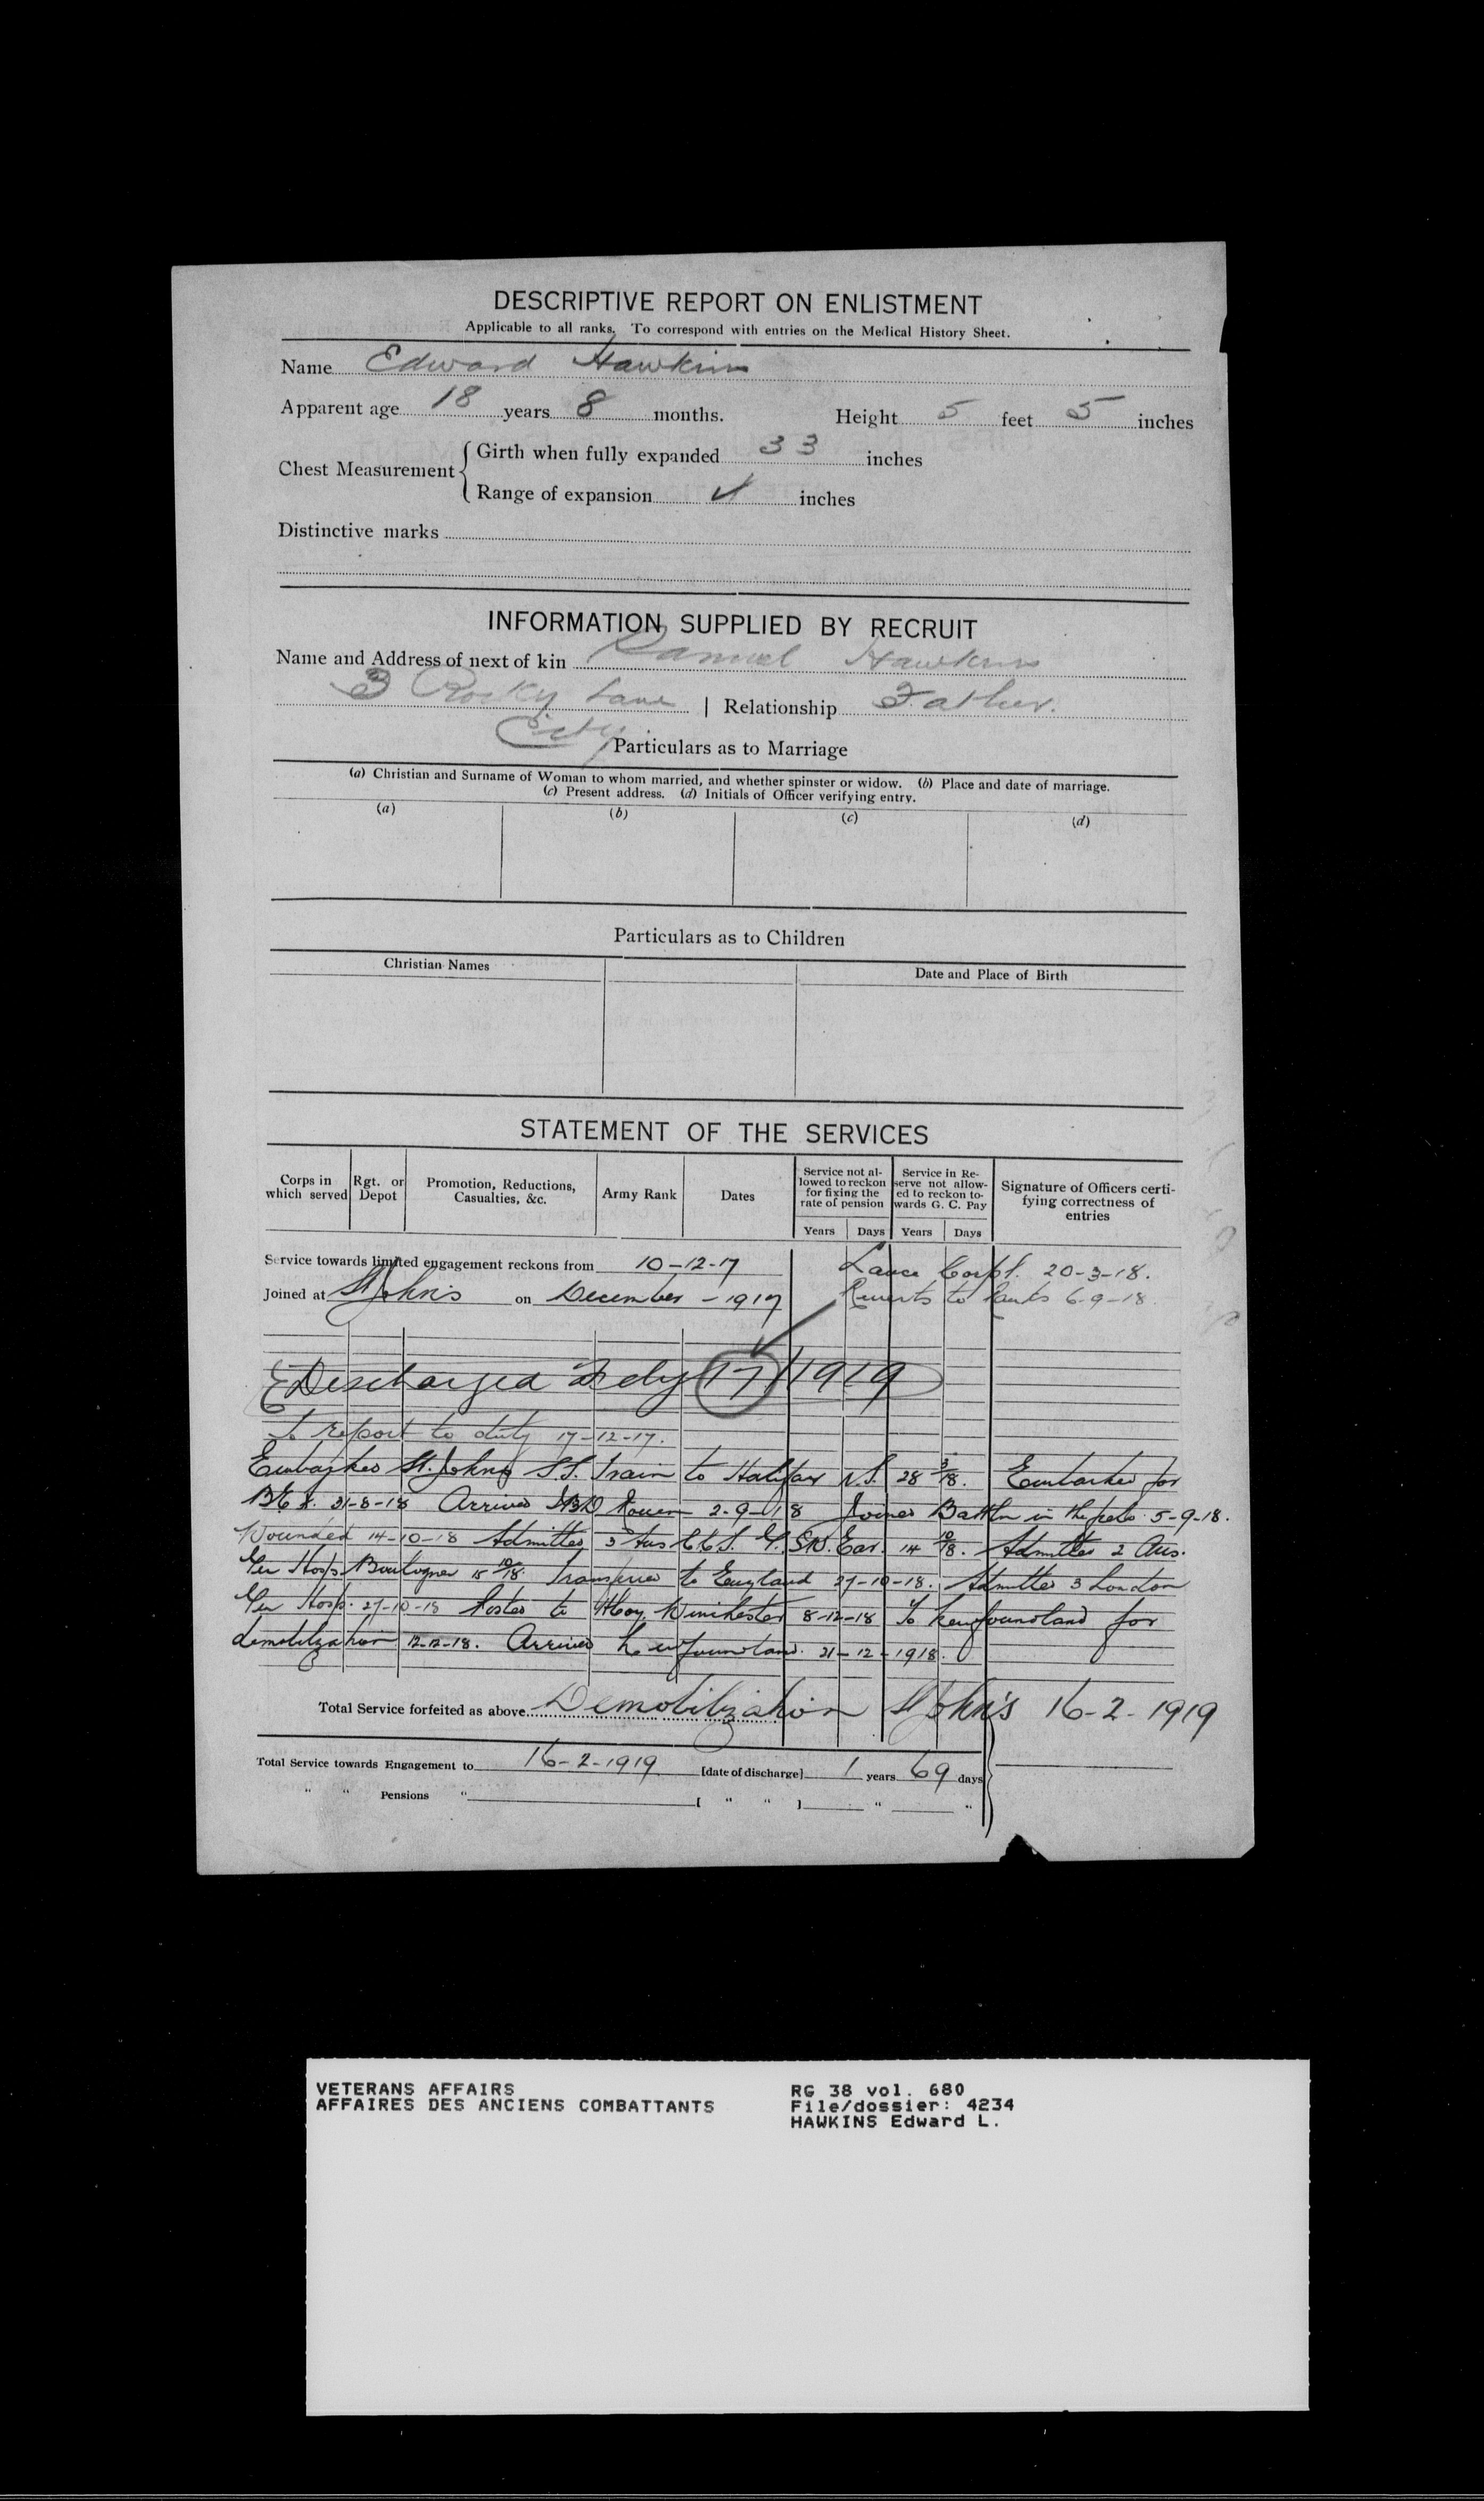 DESCRIPTIVE REPORT ON ENLISTMENT
Applicable to all ranks. To correspond with entries on the Medical History Sheet.
Name Edward Hawkins
Apparent age 18 years 8 months. Height 5 feet 5 inches
Chest Measurement { Girth when fully expanded 33 inches
Range of expansion 4 inches
Distinctive marks
INFORMATION SUPPLIED BY RECRUIT
Name and Address of next of kin Samuel Hawkins
3 Rocky Lane | Relationship Father.
City
Particulars as to Marriage
(a) Christian and Surname of Woman to whom married, and whether spinster or widow. (b) Place and date of marriage.
(c) Present address. (d) Initials of Officer verifying entry.
(a) (b) (c) (d)
Particulars as to Children
Christian Names Date and Place of Birth
STATEMENT OF THE SERVICES
Corps in which served Rgt. or Depot Promotion, Reductions, Casualties, &c. Army Rank Dates Service not allowed to reckon for fixing the rate of pension Service in Reserve not allowed to reckon towards G. C. Pay Signature of Officers certifying correctness of entries
Years Days Years Days
Service towards limited engagement reckons from 10-12-17 Lance Corpl. 20-3-18.
Joined at St John's on December - 1917 Reverts to Ranks 6-9-18
Discharged Feby 17/1919
To report to duty 17-12-17.
Embarked St. Johns S.S. Train to Halifax N.S. 28 3/18. Embarked for
B.E.F. 31-8-18 Arrived Rouen 2-9-18 Joined Battln in the field 5-9-18.
Wounded 14-10-18 Admitted 3 Aus C.C.S. G.S.W. Ear. 14 10/18. Admitted 2 Aus.
Gen Hosp. Boulogne 15 10/18. Transferred to England 27-10-18. Admitted 3 London
Gen Hosp. 27-10-18 Posted to Winchester 8-12-18 To Newfoundland for
demobilization 12-12-18. Arrived Newfoundland. 21-12-1918.
Total Service forfeited as above Demobilization St John's 16-2-1919
Total Service towards Engagement to 16-2-1919 [date of discharge] 1 years 69 days
" " Pensions " [ " " ] " "
VETERANS AFFAIRS RG 38 vol. 680
AFFAIRES DES ANCIENS COMBATTANTS File/dossier: 4234
HAWKINS Edward L.